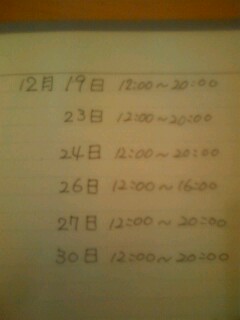 12月 19日 12:00~20:00
23日 12:00~20:00
24日 12:00~20:00
26日 12:00~16:00
27日 12:00~20:00
30日 12:00~20:00